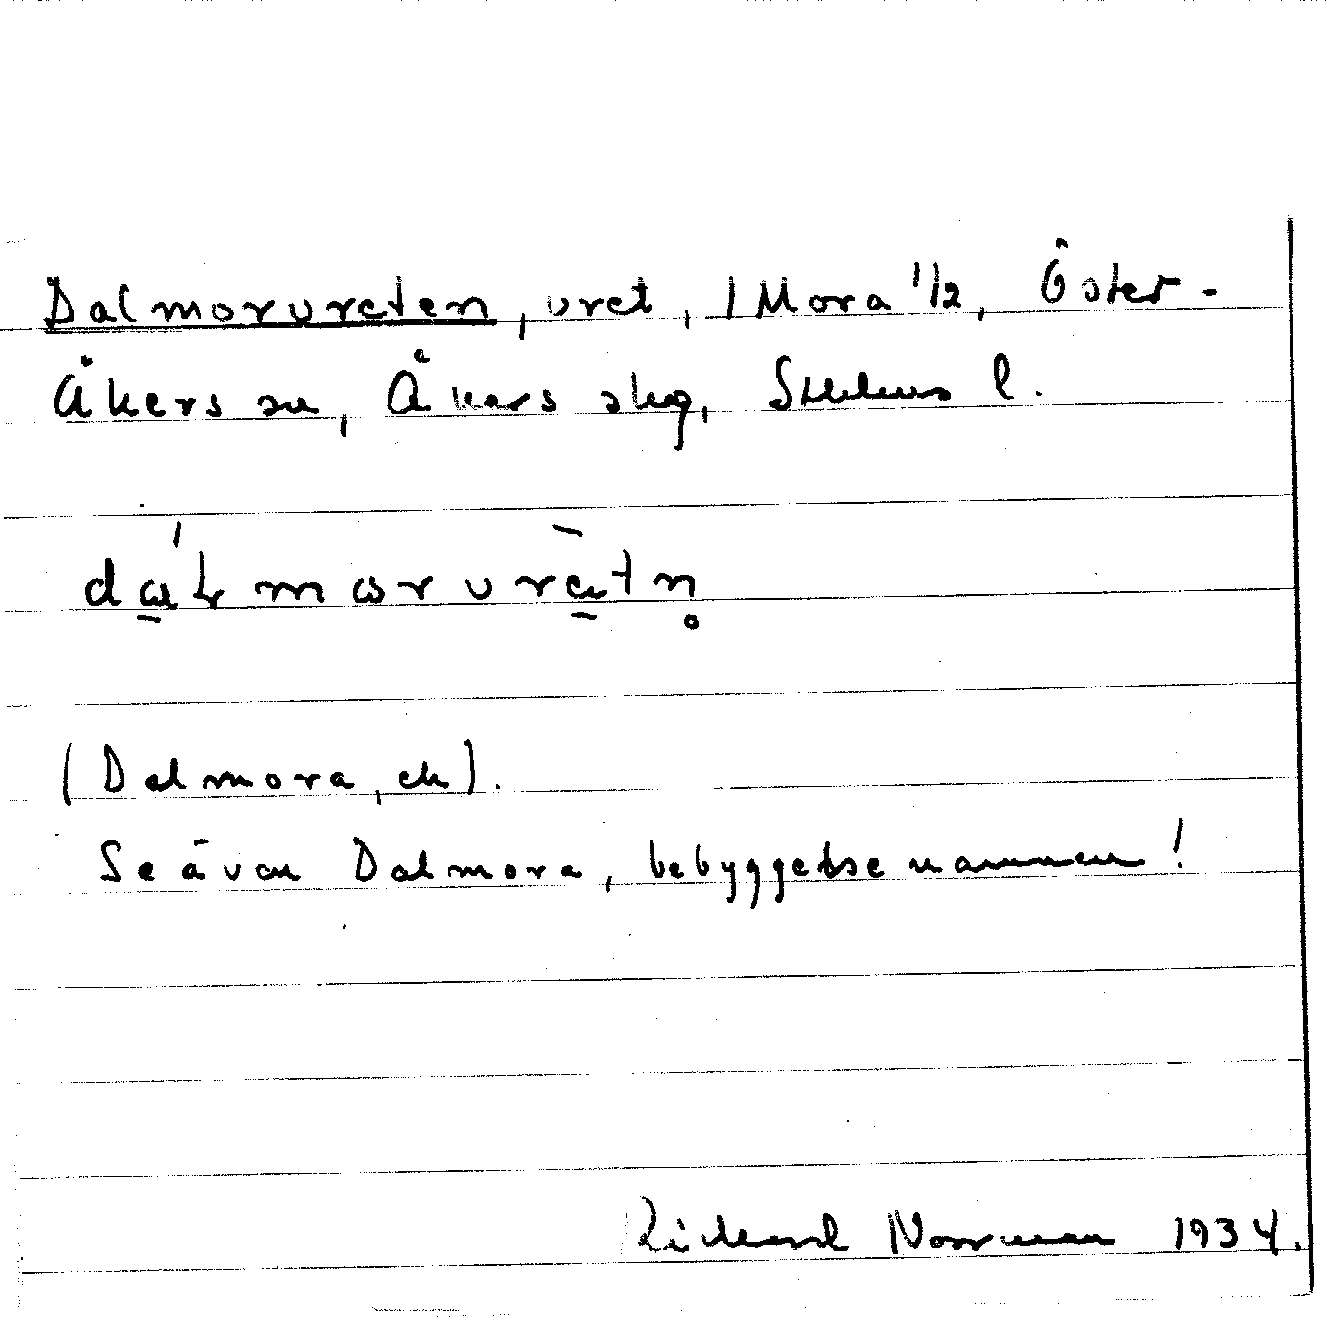 Dalmorvreten, vret, 1 Mora 1/2, Öster-
Åkers sn, Åkers skg, Sthlms l.
dά̱ꞎmωrvrè̱tn̥
(Dalmora, ck).
Se även Dalmora, bebyggelsenamnen!
Rickard Norrman 1934.